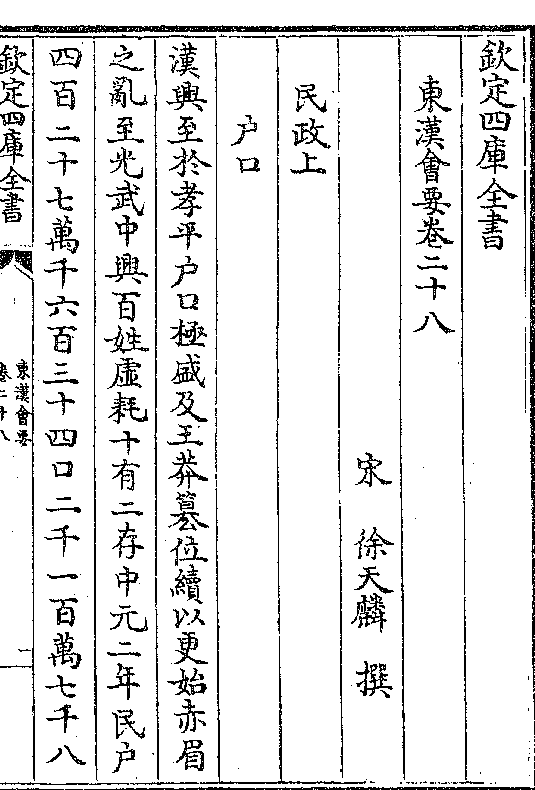 欽定四庫全書
東漢會要卷二十八
宋 徐天麟 撰
民政上
户口
漢興至於孝平户口極盛及王莽簒位續以更始赤眉
之亂至光武中興百姓虛耗十有二存中元二年民户
四百二十七萬千六百三十四口二千一百萬七千八
欽定四庫全書
東漢會要
卷二十八